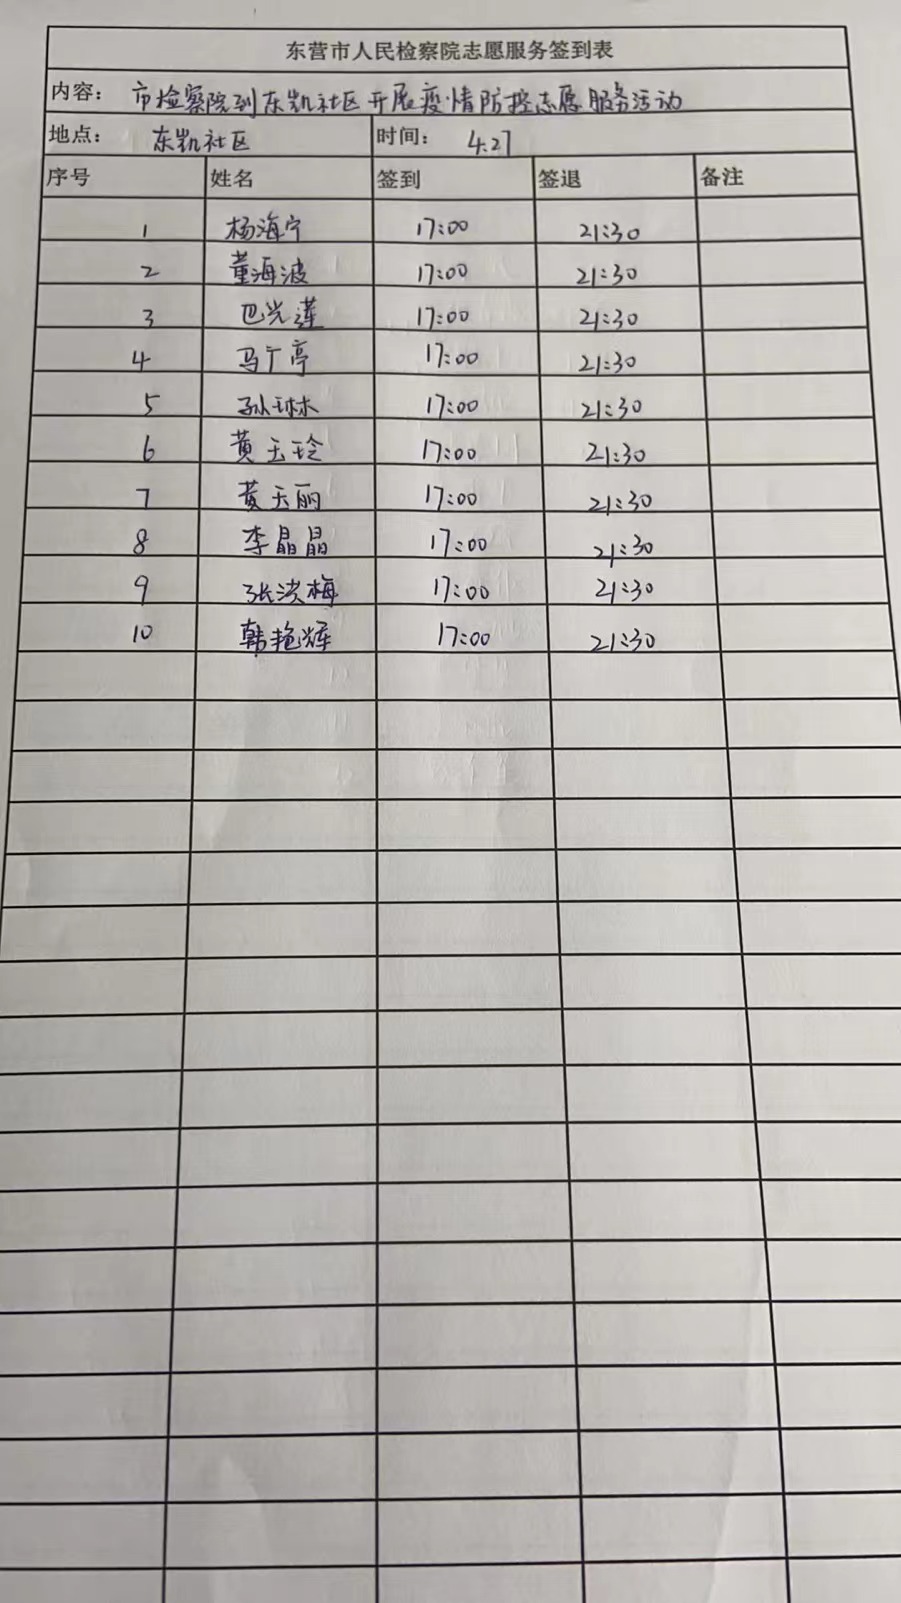 东营市人民检察院志愿服务签到表
内容： 市检察院到东凯社区开展疫情防控志愿服务活动
地点： 东凯社区 时间： 4.27
序号 姓名 签到 签退 备注
1 杨海宁 17:00 21:30
2 董海波 17:00 21:30
3 巴光莲 17:00 21:30
4 马广亭 17:00 21:30
5 孙琳 17:00 21:30
6 黄玉玲 17:00 21:30
7 黄玉丽 17:00 21:30
8 李晶晶 17:00 21:30
9 张洪梅 17:00 21:30
10 韩艳辉 17:00 21:30